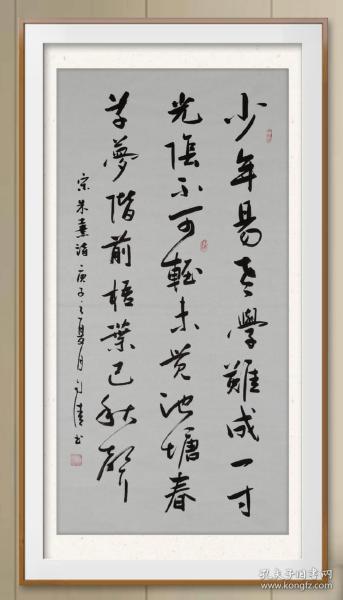 少年易老學難成一寸
光陰不可輕未覺池塘春
草夢階前梧葉已秋聲
宋朱熹诗庚子之夏月
孔夫子旧书网
www.kongfz.com